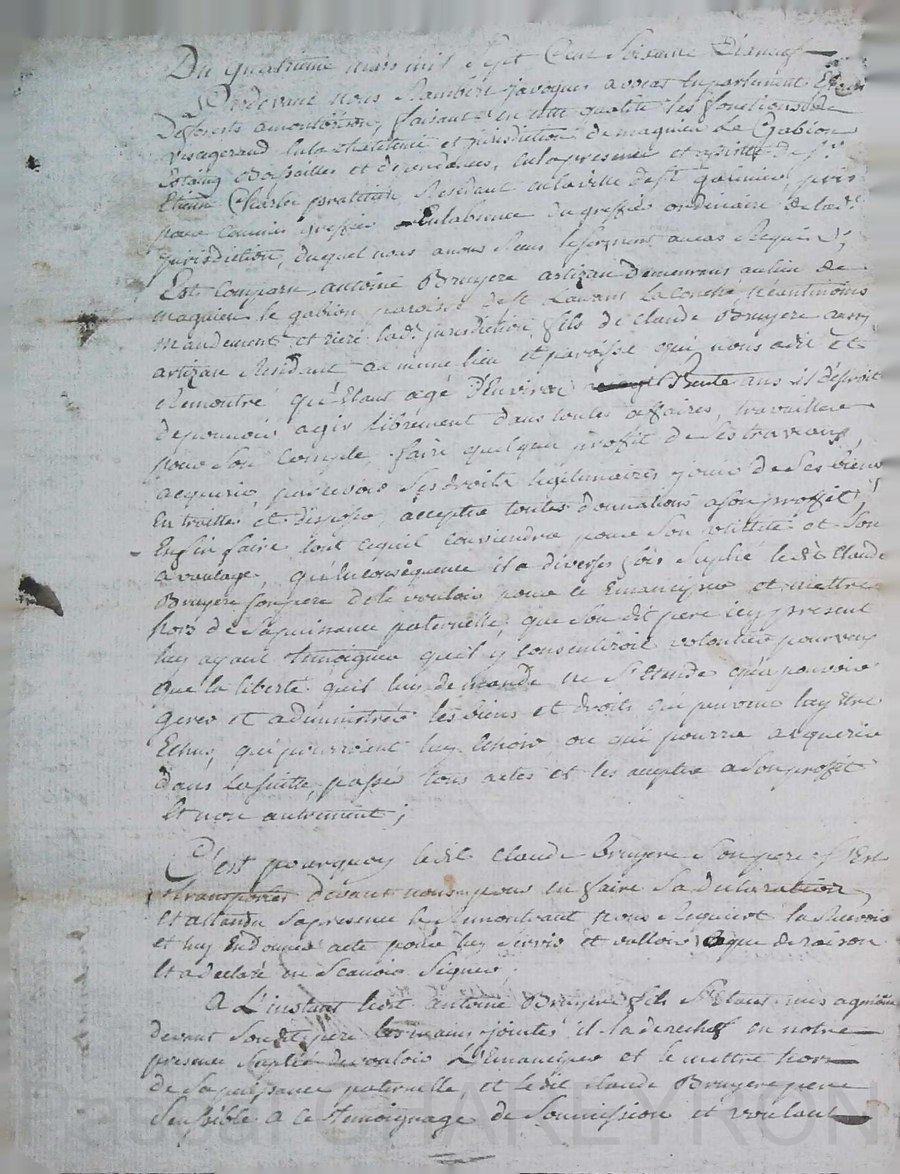 Du quatrieme mars mil sept Cent soixante Dixneuf
Pardevant nous Rambert javogues avocat en parlement Et
Deforests a montbrison, faisant en cette qualité les fonctions de
visegerand en la chatelenie et jurisdiction de magnieu Le Gabion
Estaing Batailles et dependances, en la presence et assisté de sr
Etienne Charles praticien Residant en la ville de st Garmier, pris
pour commis greffier En l'absence du greffier ordinaire de lad.
jurisdiction, duquel nous avons Receu le serment au cas Requis;
Est Comparu antoine Bruyere artizan Demeurant au lieu de
magnieu le gabion paroisse de st Laurent La Conche, Neantmoins
mandement et riere lad. jurisdiction, fils de Claude Bruyere aussy
artizan Residant au meme lieu et paroisse qui nous a dit et
Remontré qu'Etant agé D'Environ Trente ans il desiroit
de pouvoir agir librement Dans toutes affaires, travailler
pour son Compte, faire quelque profit de ses travaux,
acquerir, percevoir ses droits legitimaires, jouir de ses biens
En traitter et disposer, accepter toutes donnations a son proffit,
Enfin faire tout ce quil conviendra pour son utilitté et son
avantage, qu'En consequence il a diverses fois suplié ledit Claude
Bruyere son pere de le vouloir pour ce Emanciper et mettre
hors de sa puissance paternelle, que son dit pere icy present
luy ayant temoigné qu'il y consentiroit volontier pourveu
que la liberté quil luy demande ne s'Etende qu'a pouvoir
gerer et administrer les biens et droits qui peuvent luy etre
Echus, qui pourroient luy Echoir ou qui pourra acquerir
dans la suitte, passer tous actes et les accepter a son profit
Et non autrement;
C'est pourquoy ledit Claude Bruyere son pere s'Est
transporter devant nous pour en faire sa declaration
Et attendu sa presence le Remontrant nous Requiert la Recevoir
et luy En donner acte pour luy servir et valloir ce que de raison
Et a declaré ne Scavoir Signer;
A L'instant ledit antoine Bruyere fils s'Etant mis a genoux
devant son dit pere les mains jointes il la derechef en notre
presence suplié de vouloir L'Emanciper et le mettre hors
de sa puissance paternelle et ledit Claude Bruyere pere
Sensible a ce temoignage de Soumission et voulant
CHAREYRON